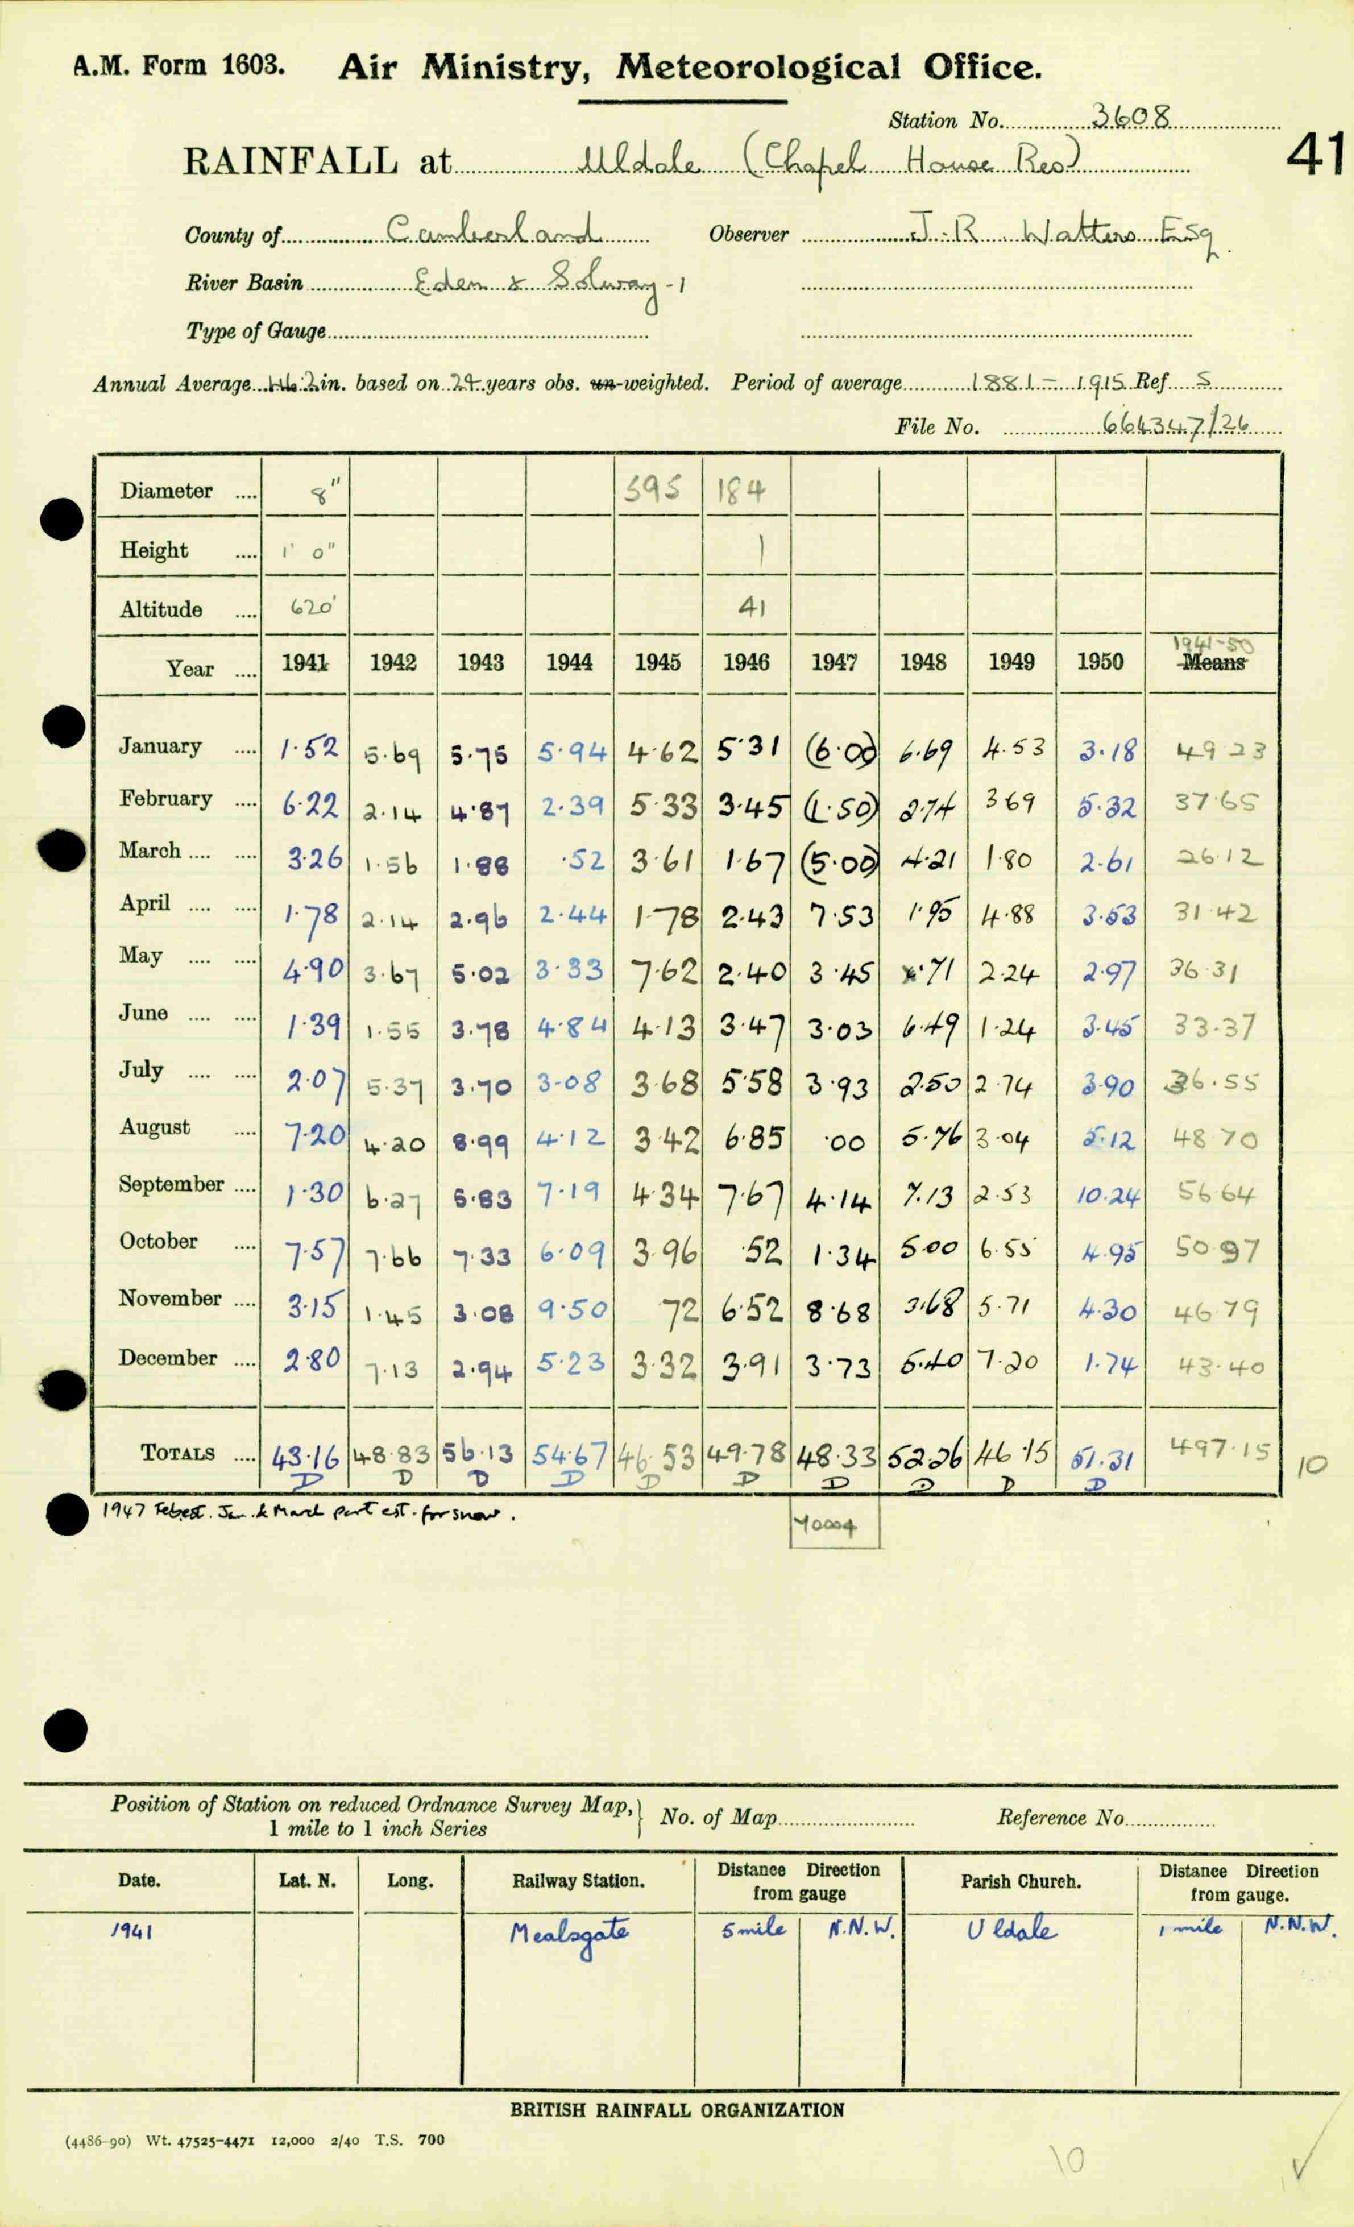 A.M. Form 1603. Air Ministry, Meteorological Office.
Station No. 3608
RAINFALL at Uldale (Chapel House Res) 41
County of Cumberland Observer J.R. Watters Esq
River Basin Eden & Solway - 1
Type of Gauge
Annual Average 46.2 in. based on 24 years obs. un-weighted. Period of average 1881 - 1915 Ref S
File No. 664347/26
Diameter .... 8" 595 184
Height .... 1' 0" 1
Altitude .... 620' 41
1941-50
Year .... 1941 1942 1943 1944 1945 1946 1947 1948 1949 1950 Means
January .... 1.52 5.69 5.75 5.94 4.62 5.31 (6.00) 6.69 4.53 3.18 49.23
February .... 6.22 2.14 4.87 2.39 5.33 3.45 (1.50) 2.74 3.69 5.32 37.65
March .... .... 3.26 1.56 1.88 .52 3.61 1.67 (5.00) 4.21 1.80 2.61 26.12
April .... .... 1.78 2.14 2.96 2.44 1.78 2.43 7.53 1.95 4.88 3.53 31.42
May .... .... 4.90 3.67 5.02 3.33 7.62 2.40 3.45 .71 2.24 2.97 36.31
June .... .... 1.39 1.55 3.78 4.84 4.13 3.47 3.03 6.49 1.24 3.45 33.37
July .... .... 2.07 5.37 3.70 3.08 3.68 5.58 3.93 2.50 2.74 3.90 36.55
August .... 7.20 4.20 8.99 4.12 3.42 6.85 .00 5.76 3.04 5.12 48.70
September .... 1.30 6.27 5.83 7.19 4.34 7.67 4.14 7.13 2.53 10.24 56.64
October .... 7.57 7.66 7.33 6.09 3.96 .52 1.34 5.00 6.55 4.95 50.97
November .... 3.15 1.45 3.08 9.50 72 6.52 8.68 3.68 5.71 4.30 46.79
December .... 2.80 7.13 2.94 5.23 3.32 3.91 3.73 5.40 7.20 1.74 43.40
TOTALS .... 43.16 48.83 56.13 54.67 46.53 49.78 48.33 52.26 46.15 51.31 497.15 10
D D D D D D D D D D
1947 Feb est. Jan. & March part est. for snow.
Position of Station on reduced Ordnance Survey Map, No. of Map Reference No.
1 mile to 1 inch Series
Date. Lat. N. Long. Railway Station. Distance Direction from gauge Parish Church. Distance Direction from gauge.
1941 Mealsgate 5 mile N.N.W. Uldale 1 mile N.N.W.
BRITISH RAINFALL ORGANIZATION
(4486-90) Wt. 47525-4471 12,000 2/40 T.S. 700
10